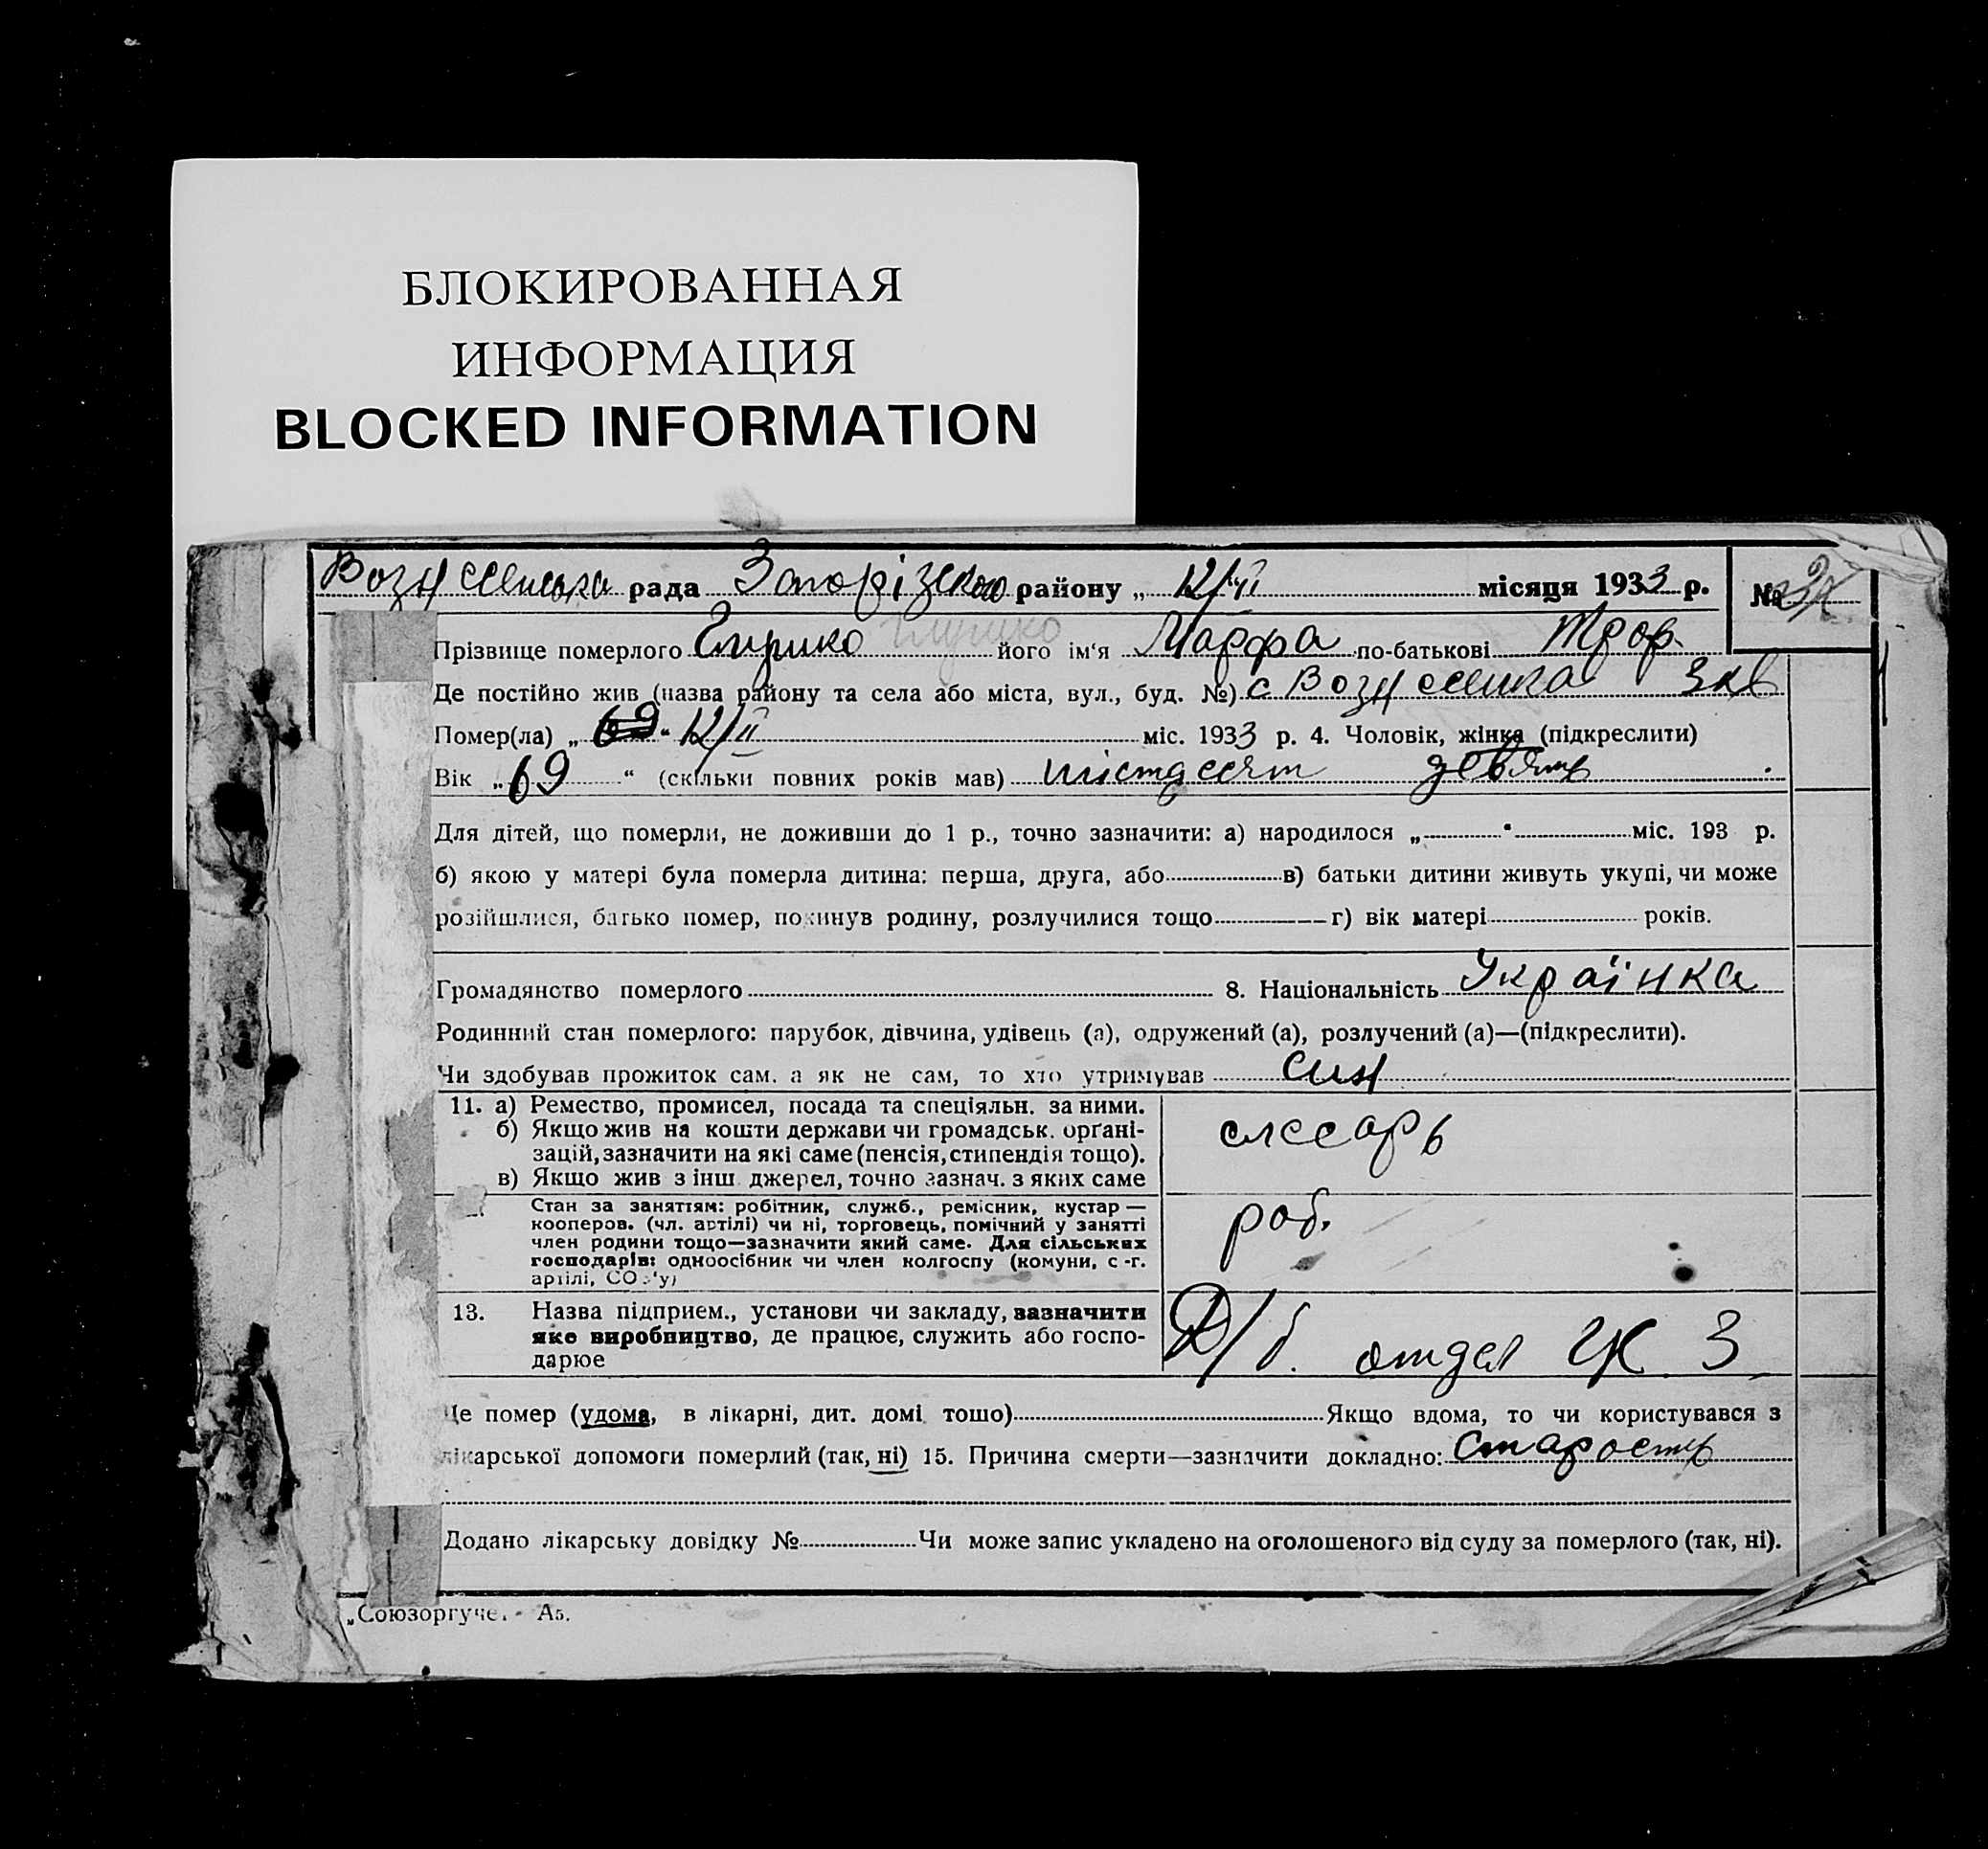 БЛОКИРОВАННАЯ
ИНФОРМАЦИЯ
BLOCKED INFORMATION
рада районy „ 12/II місяця 1933 р. №
Прізвище померлого Глушко Глушко його ім'я Марфа по-батькові Троф.
Де постійно жив (назва району та села або міста, вул., буд. №) с Вознесенка
Помер(ла) „ 69 “ 12/II міс. 1933 р. 4. Чоловік, жінка (підкреслити)
Вік „ 69 “ (скільки повних років мав) шістдесят девять
Для дітей, що померли, не доживши до 1 р., точно зазначити: а) народилося „ “ міс. 193 р.
б) якою у матері була померла дитина: перша, друга, або в) батьки дитини живуть укупі, чи може
розійшлися, батько помер, покинув родину, розлучилися тощо г) вік матері років.
Громадянство померлого 8. Національність Українка
Родинний стан померлого: парубок, дівчина, удівець (а), одружений (а), розлучений (а)—(підкреслити).
Чи здобував прожиток сам. а як не сам, то хто утримував син
11. а) Ремество, промисел, посада та спеціяльн. за ними.
б) Якщо жив на кошти держави чи громадськ. орґані-
зацій, зазначити на які саме (пенсія, стипендія тощо).
в) Якщо жив з інш джерел, точно зазнач. з яких саме
слесарь
Стан за заняттям: робітник, служб., ремісник, кустар —
кооперов. (чл. артілі) чи ні, торговець, помічний у занятті
член родини тощо—зазначити який саме. Для сільських
господарів: одноосібник чи член колгоспу (комуни, с.-г.
артілі, СО у)
роб.
13. Назва підприєм., установи чи закладу, зазначити
яке виробництво, де працює, служить або госпо-
дарюе
отдел
Це помер (удома, в лікарні, дит. домі тощо) Якщо вдома, то чи користувався з
лікарської допомоги померлий (так, ні) 15. Причина смерти—зазначити докладно: старость
Додано лікарську довідку № Чи може запис укладено на оголошеного від суду за померлого (так, ні).
„Союзоргучет А5.